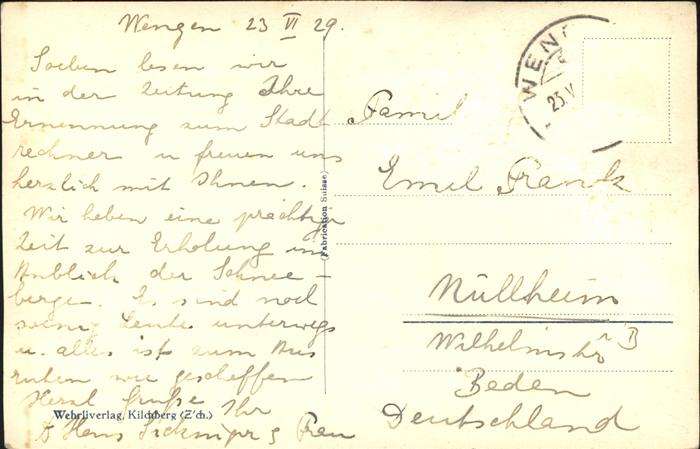 Wengen 23 VI 29.
Soeben lesen wir
in der Zeitung Ihre
Ernennung zum Stadt
rechner u freuen uns
herzlich mit Ihnen.
Wir haben eine prächtige
Zeit zur Erholung im
Anblick der Schnee-
berge. Es sind noch
wenig Leute unterwegs
u. alles ist zum Aus
ruhen wie geschaffen
Herzl Grüße Ihr
Hans & Frau
Wehrliverlag, Kilchberg (Z'ch.)
(Fabrication Suisse)
WEN
23.V
Famil
Emil Frank
Müllheim
Wilhelmstr B
Baden
Deutschland